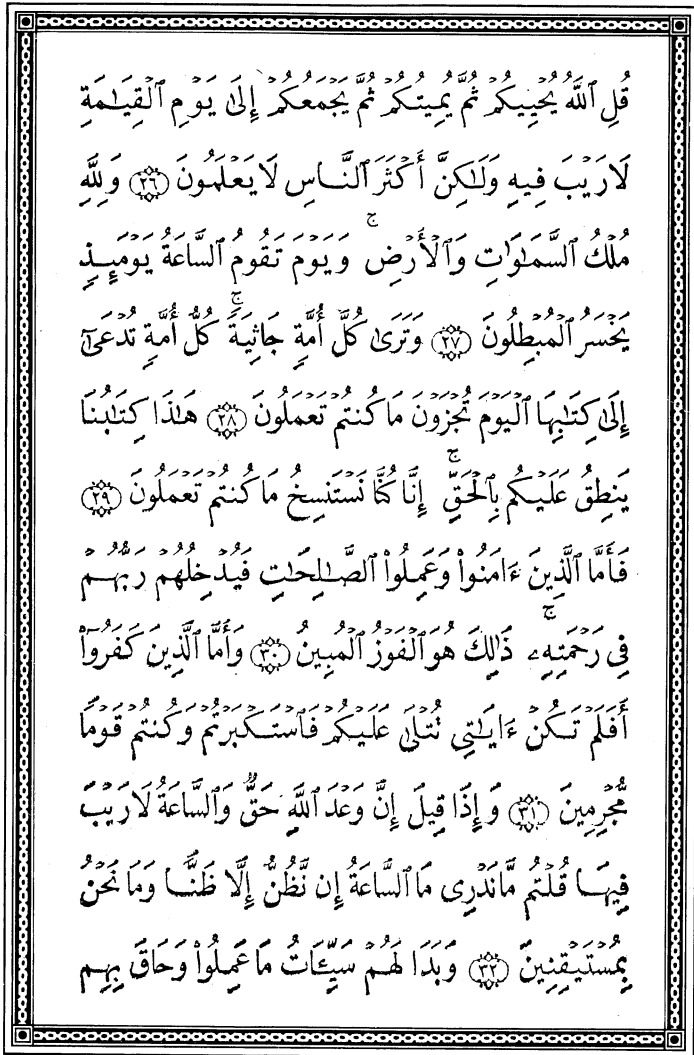 قُلِ ٱللَّهُ يُحْيِيكُمْ ثُمَّ يُمِيتُكُمْ ثُمَّ يَجْمَعُكُمْ إِلَىٰ يَوْمِ ٱلْقِيَـٰمَةِ
لَا رَيْبَ فِيهِ وَلَـٰكِنَّ أَكْثَرَ ٱلنَّاسِ لَا يَعْلَمُونَ ٢٦ وَلِلَّهِ
مُلْكُ ٱلسَّمَـٰوَٰتِ وَٱلْأَرْضِ ۚ وَيَوْمَ تَقُومُ ٱلسَّاعَةُ يَوْمَئِذٍ
يَخْسَرُ ٱلْمُبْطِلُونَ ٢٧ وَتَرَىٰ كُلَّ أُمَّةٍ جَاثِيَةً ۚ كُلُّ أُمَّةٍ تُدْعَىٰٓ
إِلَىٰ كِتَـٰبِهَا ٱلْيَوْمَ تُجْزَوْنَ مَا كُنتُمْ تَعْمَلُونَ ٢٨ هَـٰذَا كِتَـٰبُنَا
يَنطِقُ عَلَيْكُم بِٱلْحَقِّ ۚ إِنَّا كُنَّا نَسْتَنسِخُ مَا كُنتُمْ تَعْمَلُونَ ٢٩
فَأَمَّا ٱلَّذِينَ ءَامَنُوا۟ وَعَمِلُوا۟ ٱلصَّـٰلِحَـٰتِ فَيُدْخِلُهُمْ رَبُّهُمْ
فِى رَحْمَتِهِۦ ۚ ذَٰلِكَ هُوَ ٱلْفَوْزُ ٱلْمُبِينُ ٣٠ وَأَمَّا ٱلَّذِينَ كَفَرُوٓا۟
أَفَلَمْ تَكُنْ ءَايَـٰتِى تُتْلَىٰ عَلَيْكُمْ فَٱسْتَكْبَرْتُمْ وَكُنتُمْ قَوْمًا
مُّجْرِمِينَ ٣١ وَإِذَا قِيلَ إِنَّ وَعْدَ ٱللَّهِ حَقٌّ وَٱلسَّاعَةُ لَا رَيْبَ
فِيهَا قُلْتُم مَّا نَدْرِى مَا ٱلسَّاعَةُ إِن نَّظُنُّ إِلَّا ظَنًّا وَمَا نَحْنُ
بِمُسْتَيْقِنِينَ ٣٢ وَبَدَا لَهُمْ سَيِّـَٔاتُ مَا عَمِلُوا۟ وَحَاقَ بِهِم